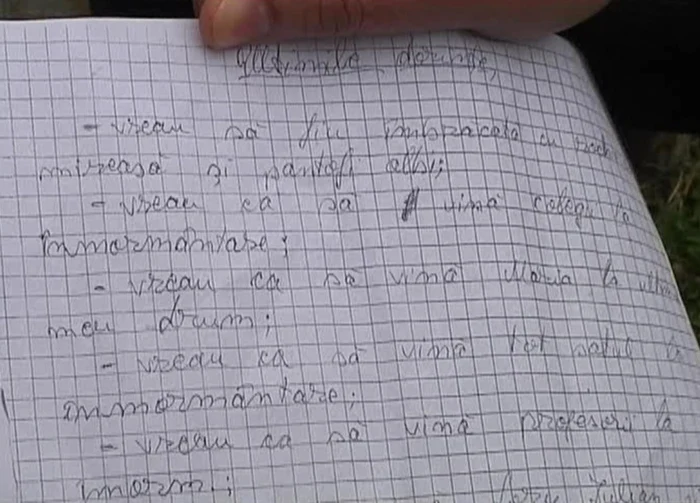 Ultimile dorințe,
- vreau să fiu îmbrăcată cu rochi
mireasă și pantofi albi;
- vreau ca să vină colegi la
înmormântare;
- vreau ca să vină Maria la ultim
meu drum;
- vreau ca să vină tot satul la
înmormântare;
- vreau ca să vină profesori la
înmorm.;